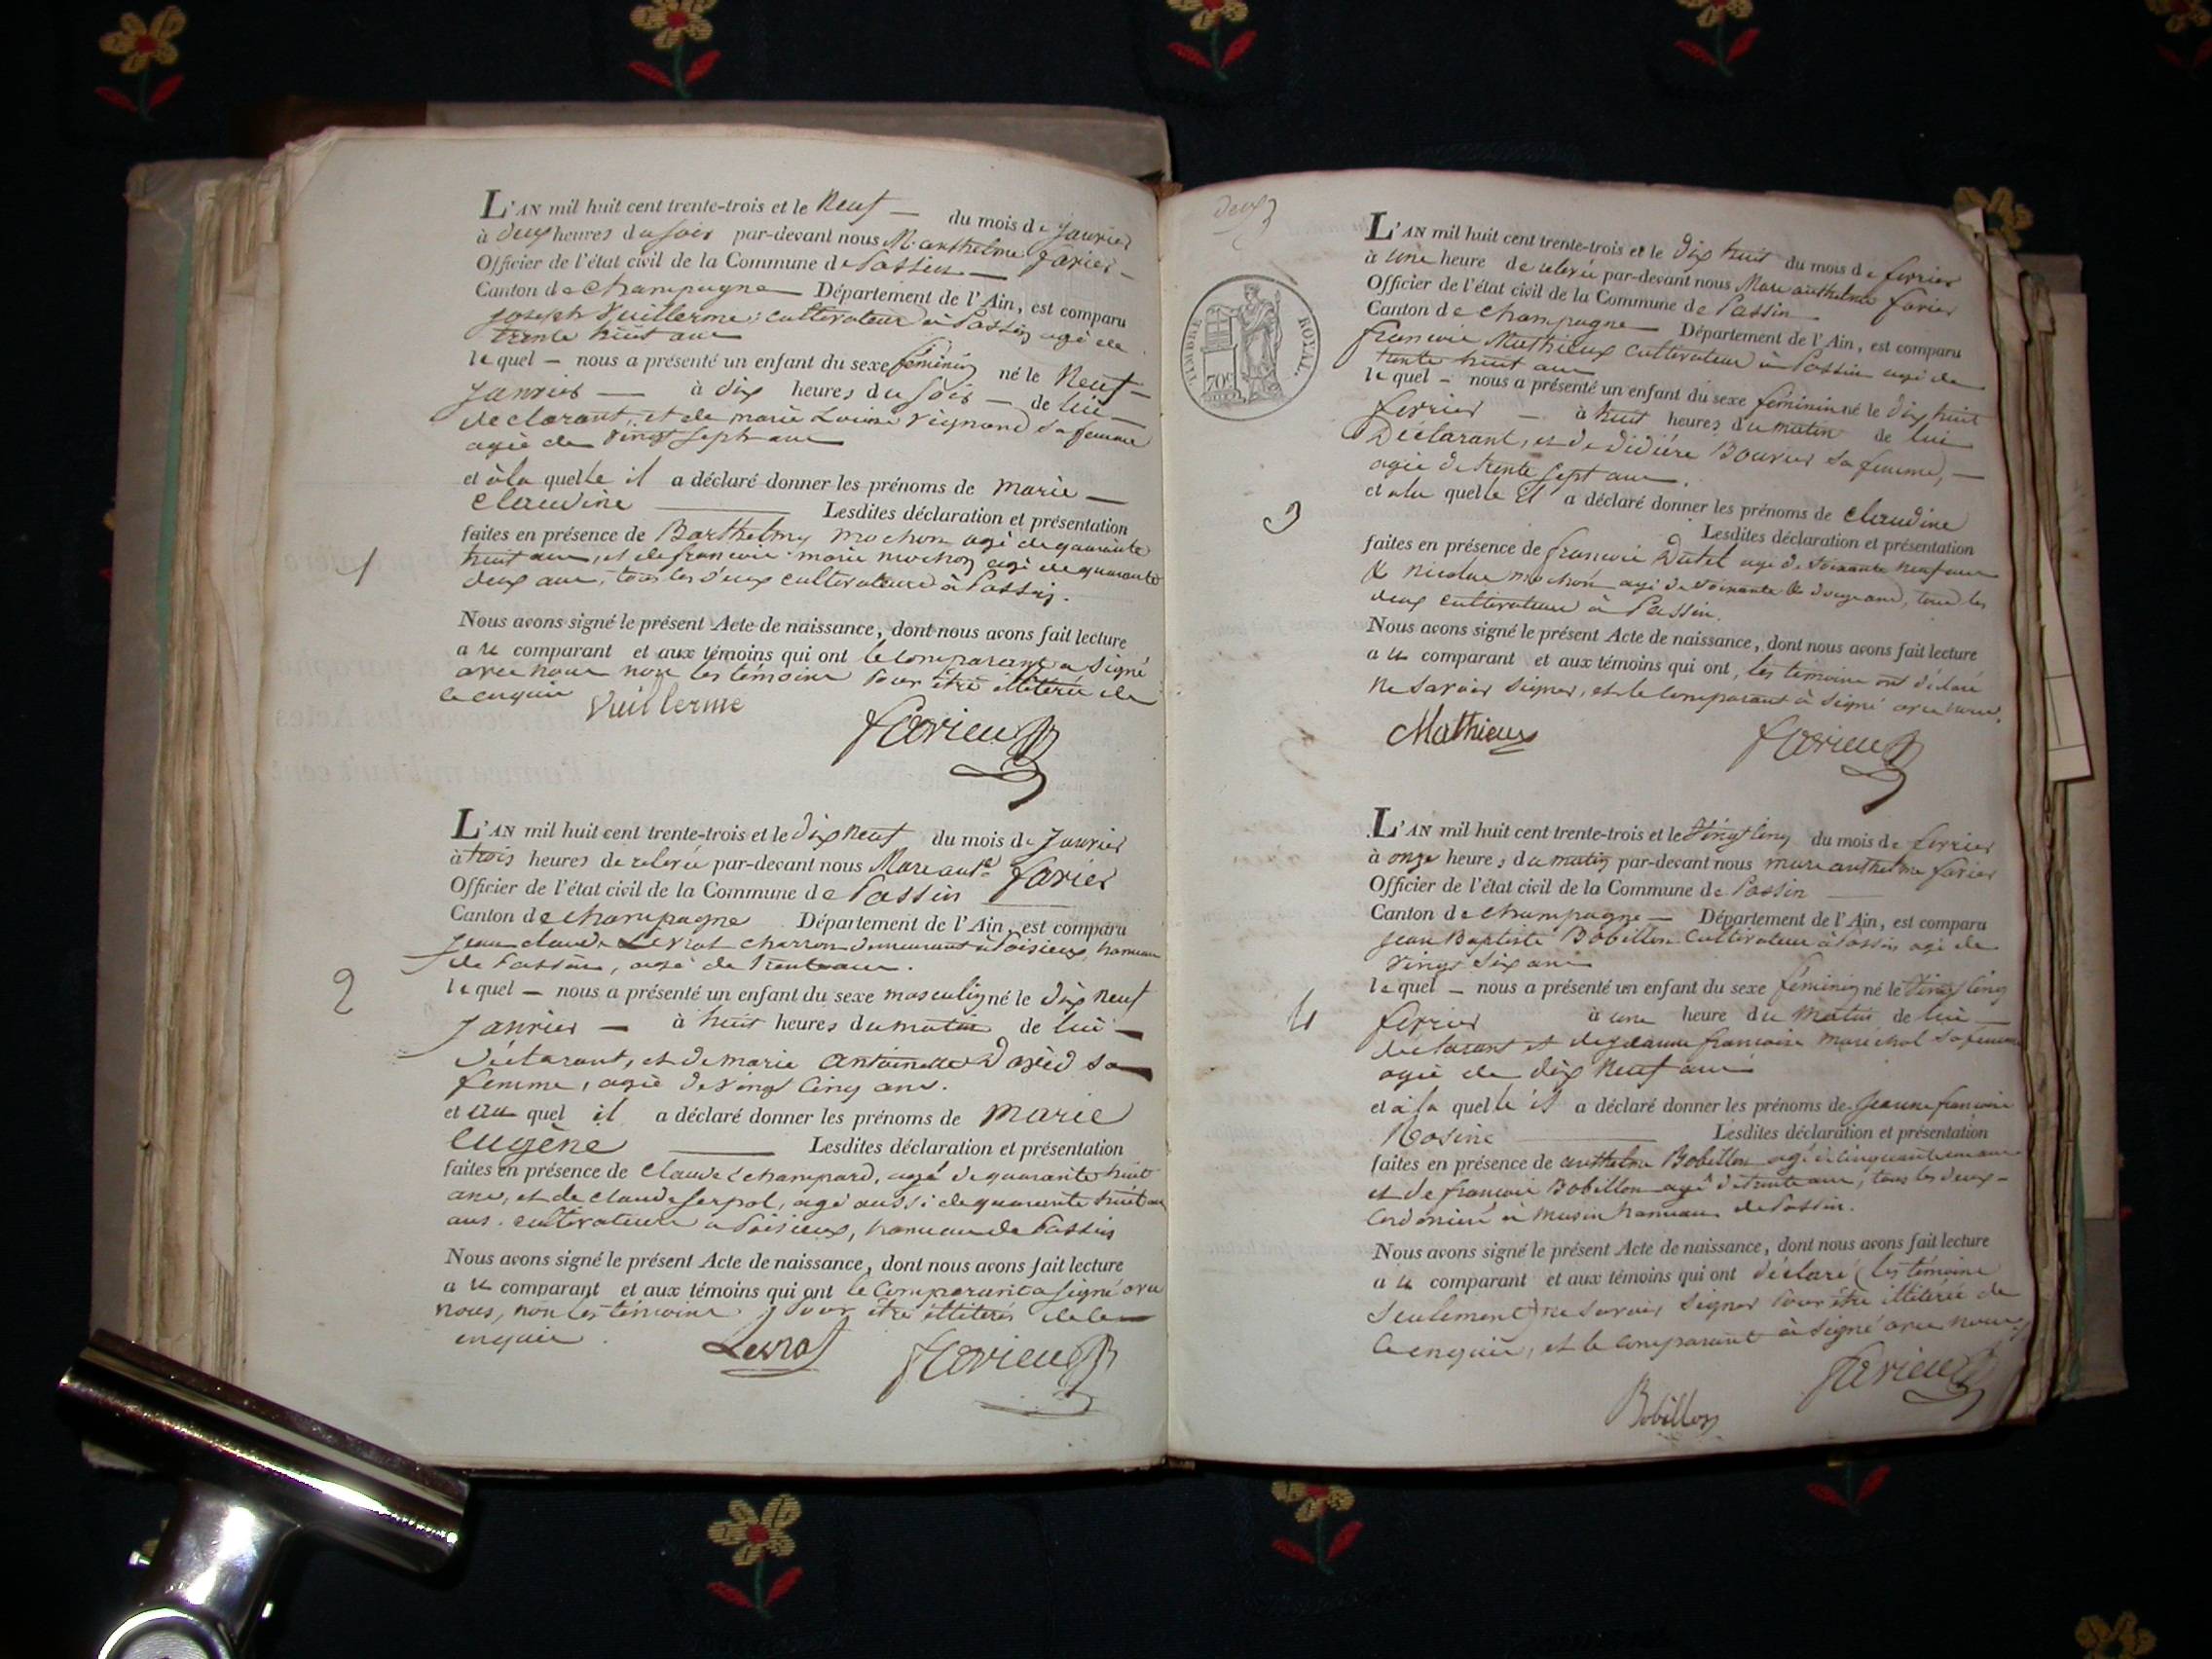 L'AN mil huit cent trente-trois et le Neuf — du mois de Janvier
à deux heures du soir par-devant nous M. anthelme favier —
Officier de l'état civil de la Commune de Passin —
Canton de champagne — Département de l'Ain, est comparu
joseph Vuillerme cultivateur à Passin agé de
trente huit ans
lequel — nous a présenté un enfant du sexe féminin né le Neuf —
Janvier — à dix heures du soir — de lui —
déclarant, et de marie Louise sa femme
agée de vingt sept ans
et à la quelle il a déclaré donner les prénoms de marie —
claudine — Lesdites déclaration et présentation
faites en présence de Barthelmy mochon agé de quarante
huit ans, et de francois marie mochon agé de quarante
deux ans, tous les deux cultivateurs à Passin.
1
Nous avons signé le présent Acte de naissance, dont nous avons fait lecture
au comparant et aux témoins qui ont le comparant a signé
avec nous non les témoins pour être illitéré de
ce enquis
Vuillerme
favier
L'AN mil huit cent trente-trois et le dix neuf du mois de Janvier
à trois heures de relevée par-devant nous Marc ant.e favier
Officier de l'état civil de la Commune de Passin —
Canton de champagne Département de l'Ain, est comparu
Jean claude Levrat charron demeurant à Poisieux, hameau
de Passin, agé de trente ans.
lequel — nous a présenté un enfant du sexe masculin né le dix neuf
2
Janvier — à huit heures du matin de lui —
déclarant, et de marie antoinette David sa
femme, agée de vingt cinq ans.
et au quel il a déclaré donner les prénoms de marie
eugène — Lesdites déclaration et présentation
faites en présence de claude champard, agé de quarante huit
ans, et de claude serpol, agé aussi de quarante huit ans
ans. cultivateurs a Poisieux, hameau de Passin
Nous avons signé le présent Acte de naissance, dont nous avons fait lecture
au comparant et aux témoins qui ont le comparant a signé avec
nous, non les témoins pour être illitérés de ce
enquis.
Levrat
favier
deux
TIMBRE ROYAL.
70c
L'AN mil huit cent trente-trois et le dix huit du mois de fevrier
à une heure de relevée par-devant nous Marc anthelme favier
Officier de l'état civil de la Commune de Passin
Canton de champagne — Département de l'Ain, est comparu
francois Mathieux cultivateur à Passin agé de
trente huit ans
lequel — nous a présenté un enfant du sexe féminin né le dix huit
fevrier — à huit heures du matin de lui
Déclarant, et de didière Bouvier sa femme, —
agée de trente sept ans.
et a la quelle il a déclaré donner les prénoms de claudine
3
Lesdites déclaration et présentation
faites en présence de francois Dutel agé de soixante neuf ans
& nicolas mochon agé de soixante & douze ans, tous les
deux cultivateurs à Passin.
Nous avons signé le présent Acte de naissance, dont nous avons fait lecture
au comparant et aux témoins qui ont, les témoins ont déclaré
ne savoir signer, et le comparant à signé avec nous.
Mathieux
favier
L'AN mil huit cent trente-trois et le vingt cinq du mois de fevrier
à onze heures du matin par-devant nous marc anthelme favier
Officier de l'état civil de la Commune de Passin —
Canton de champagne — Département de l'Ain, est comparu
Jean Baptiste Bobillon cultivateur à Passin agé de
vingt six ans
lequel — nous a présenté un enfant du sexe féminin né le vingt cinq
4
fevrier à une heure du matin de lui —
déclarant et de jeanne francoise maréchal sa femme
agée de dix neuf ans
et à la quelle il a déclaré donner les prénoms de jeanne francoise
Rosine — Lesdites déclaration et présentation
faites en présence de anthelme Bobillon agé de cinquante un ans
et de francois Bobillon agé de trente ans, tous les deux —
cordoniers à musin hameau de Passin.
Nous avons signé le présent Acte de naissance, dont nous avons fait lecture
au comparant et aux témoins qui ont déclaré (les témoins
seulement) ne savoir signer pour être illitérés de
ce enquis, et le comparant à signé avec nous
favier
Bobillon